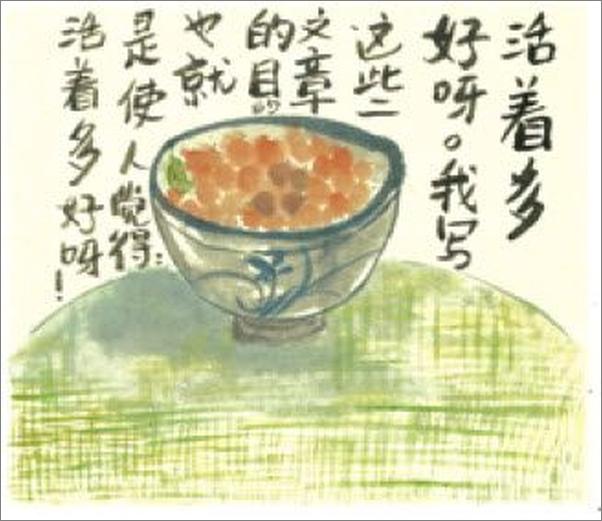 活着多
好呀。我写
这些
文章
的目的
也就
是使人觉得：
活着多好呀！